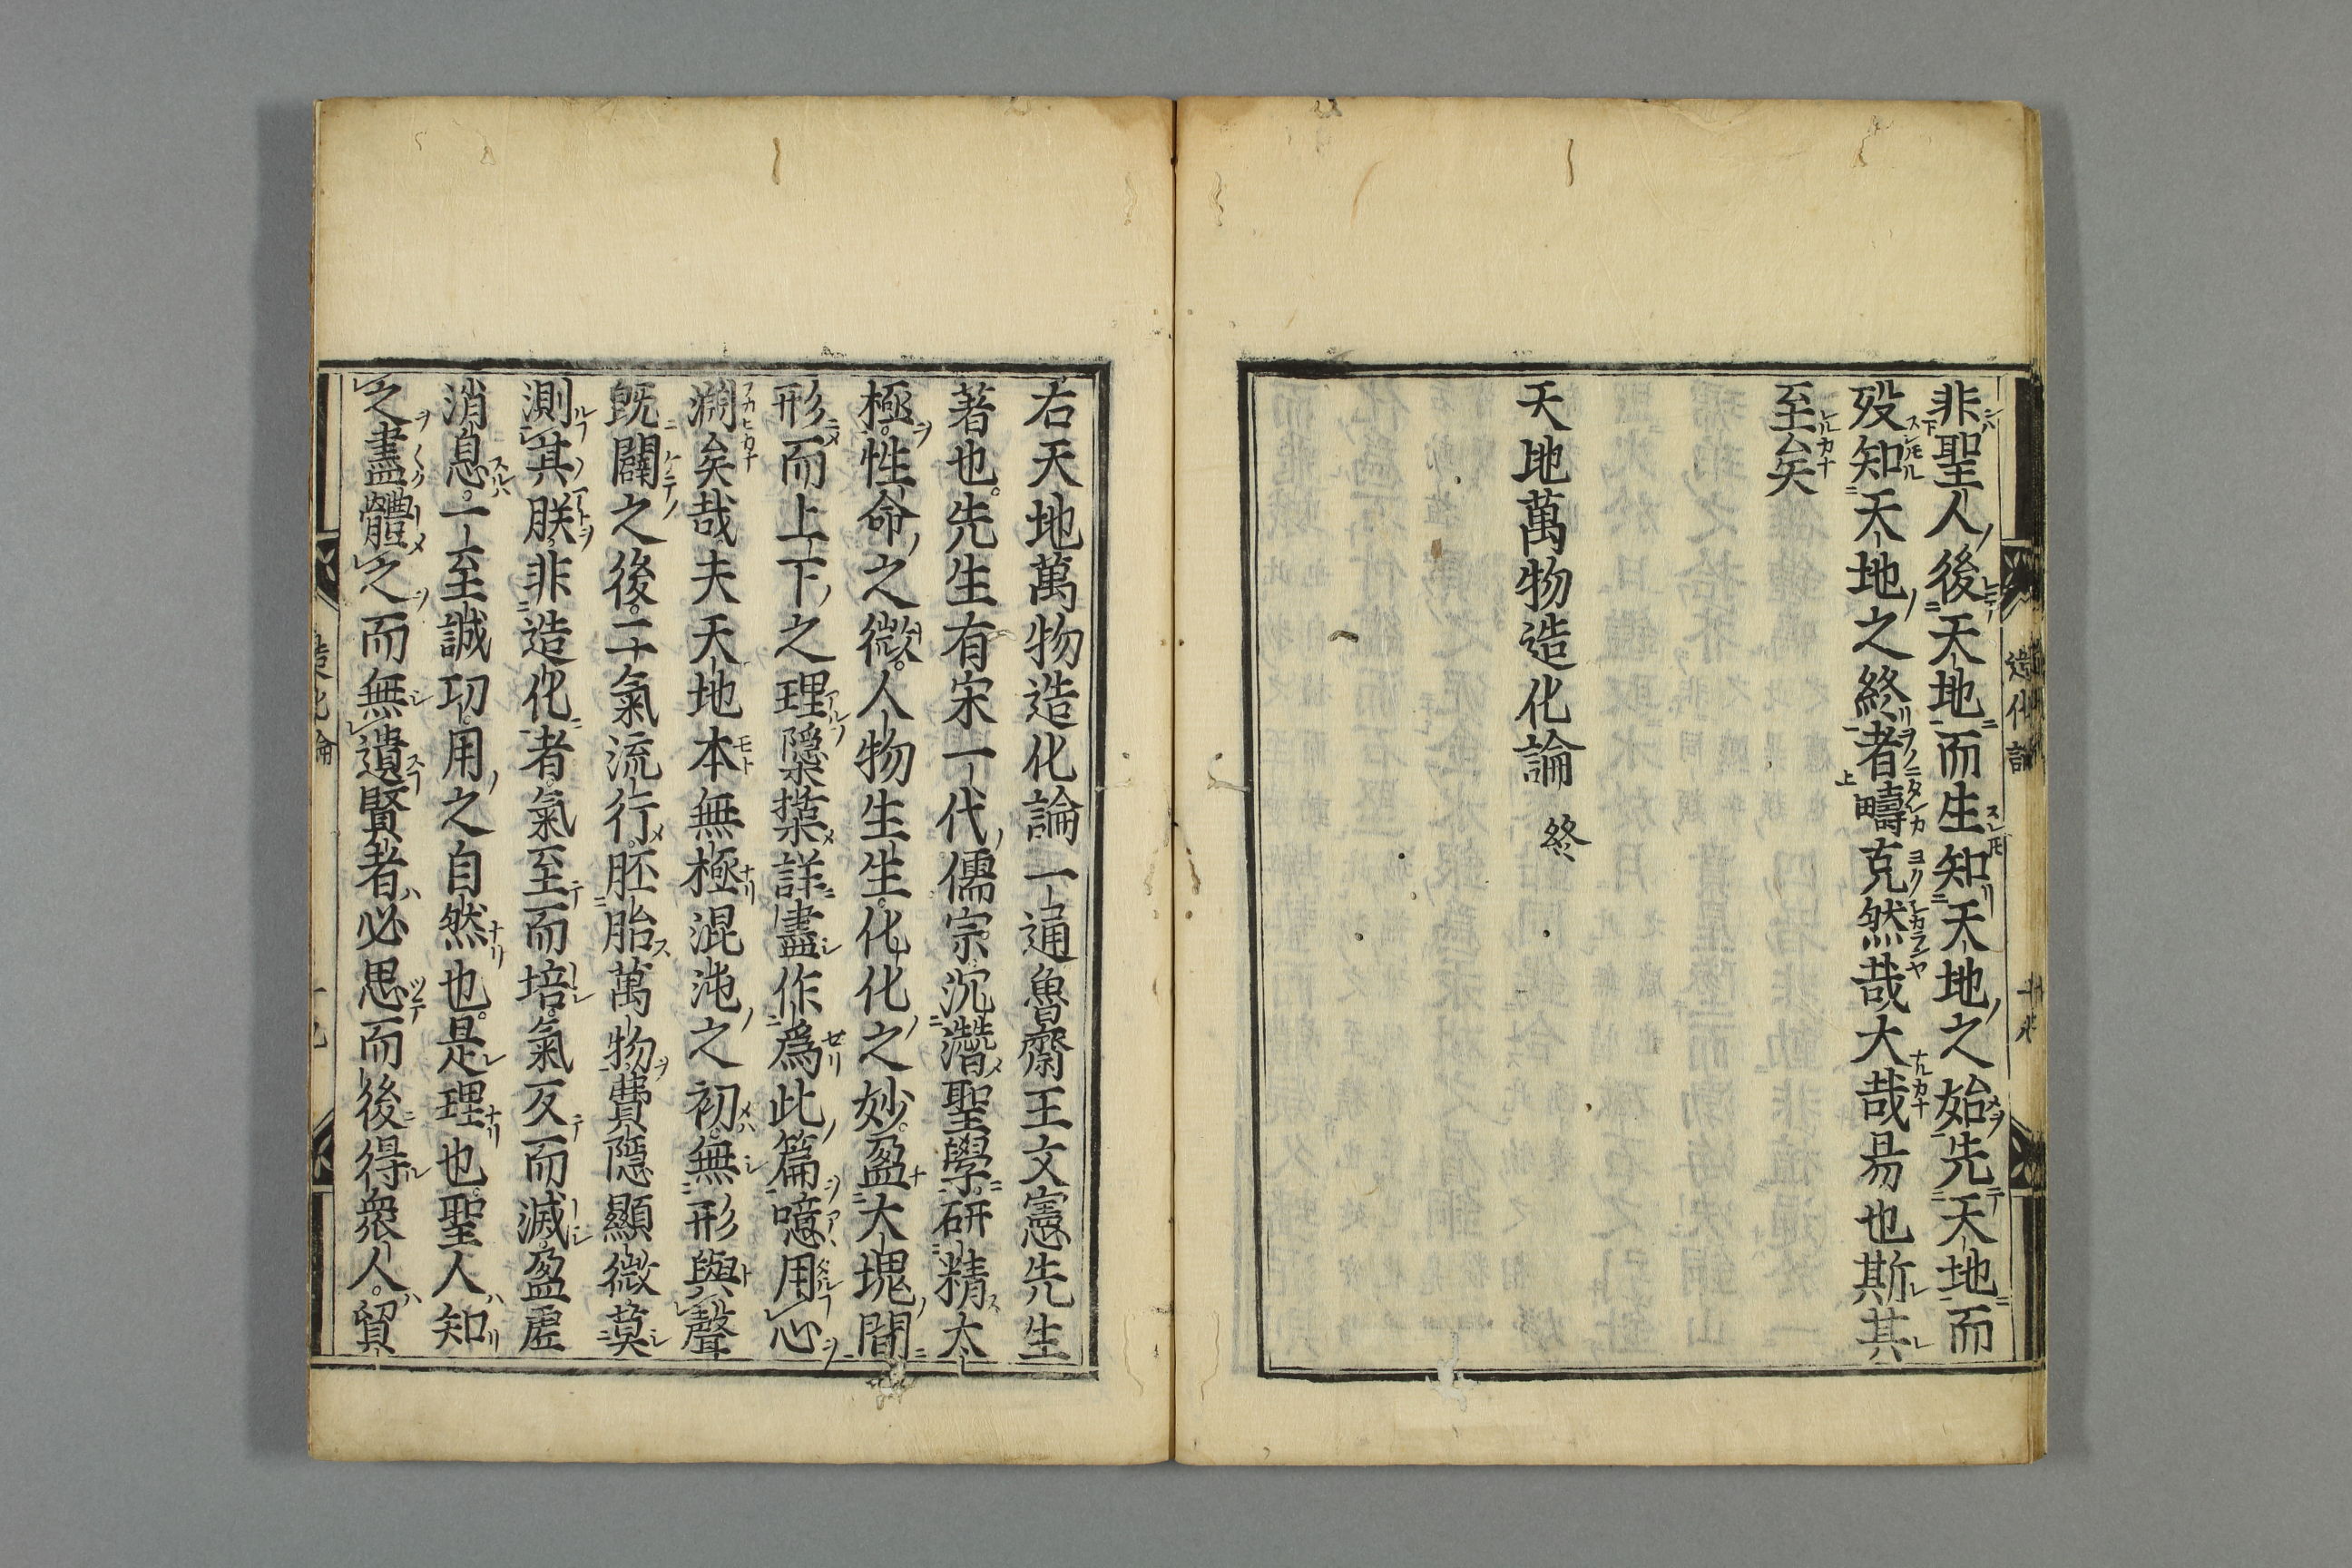 非聖人後天地而生知天地之始先天地而
歿知天地之終者疇克然哉大哉昜也斯其
至矣
天地萬物造化論 終
造化論
右天地萬物造化論一通魯齋王文憲先生
著也先生有宋一代儒宗沉潛聖學研精太
極性命之微人物生生化化之妙盈大塊間
形而上下之理隱櫽詳盡作爲此篇噫用心
渊矣哉夫天地本無極混沌之初無形與聲
既闢之後二氣流行胚胎萬物費隱顯微莫
測其朕非造化者氣至而培氣反而滅盈虛
消息一至誠功用之自然也是理也聖人知
之盡體之而無遺賢者必思而後得衆人貿